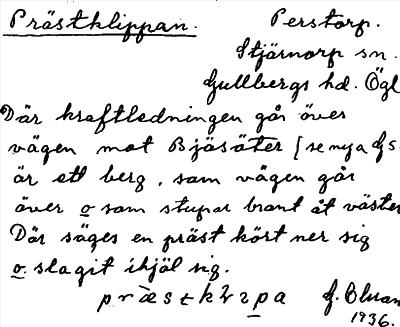 Prästklippan. Perstorp.
Stjärnorp sn.
Gullbergs hd. Ögl
Där kraftledningen går över
vägen mot Bjäsäter [se nya Gs.
är ett berg, som vägen går
över o som stupar brant åt väster
Där säges en präst kört ner sig
o. slagit ihjäl sig.
G.
1936.